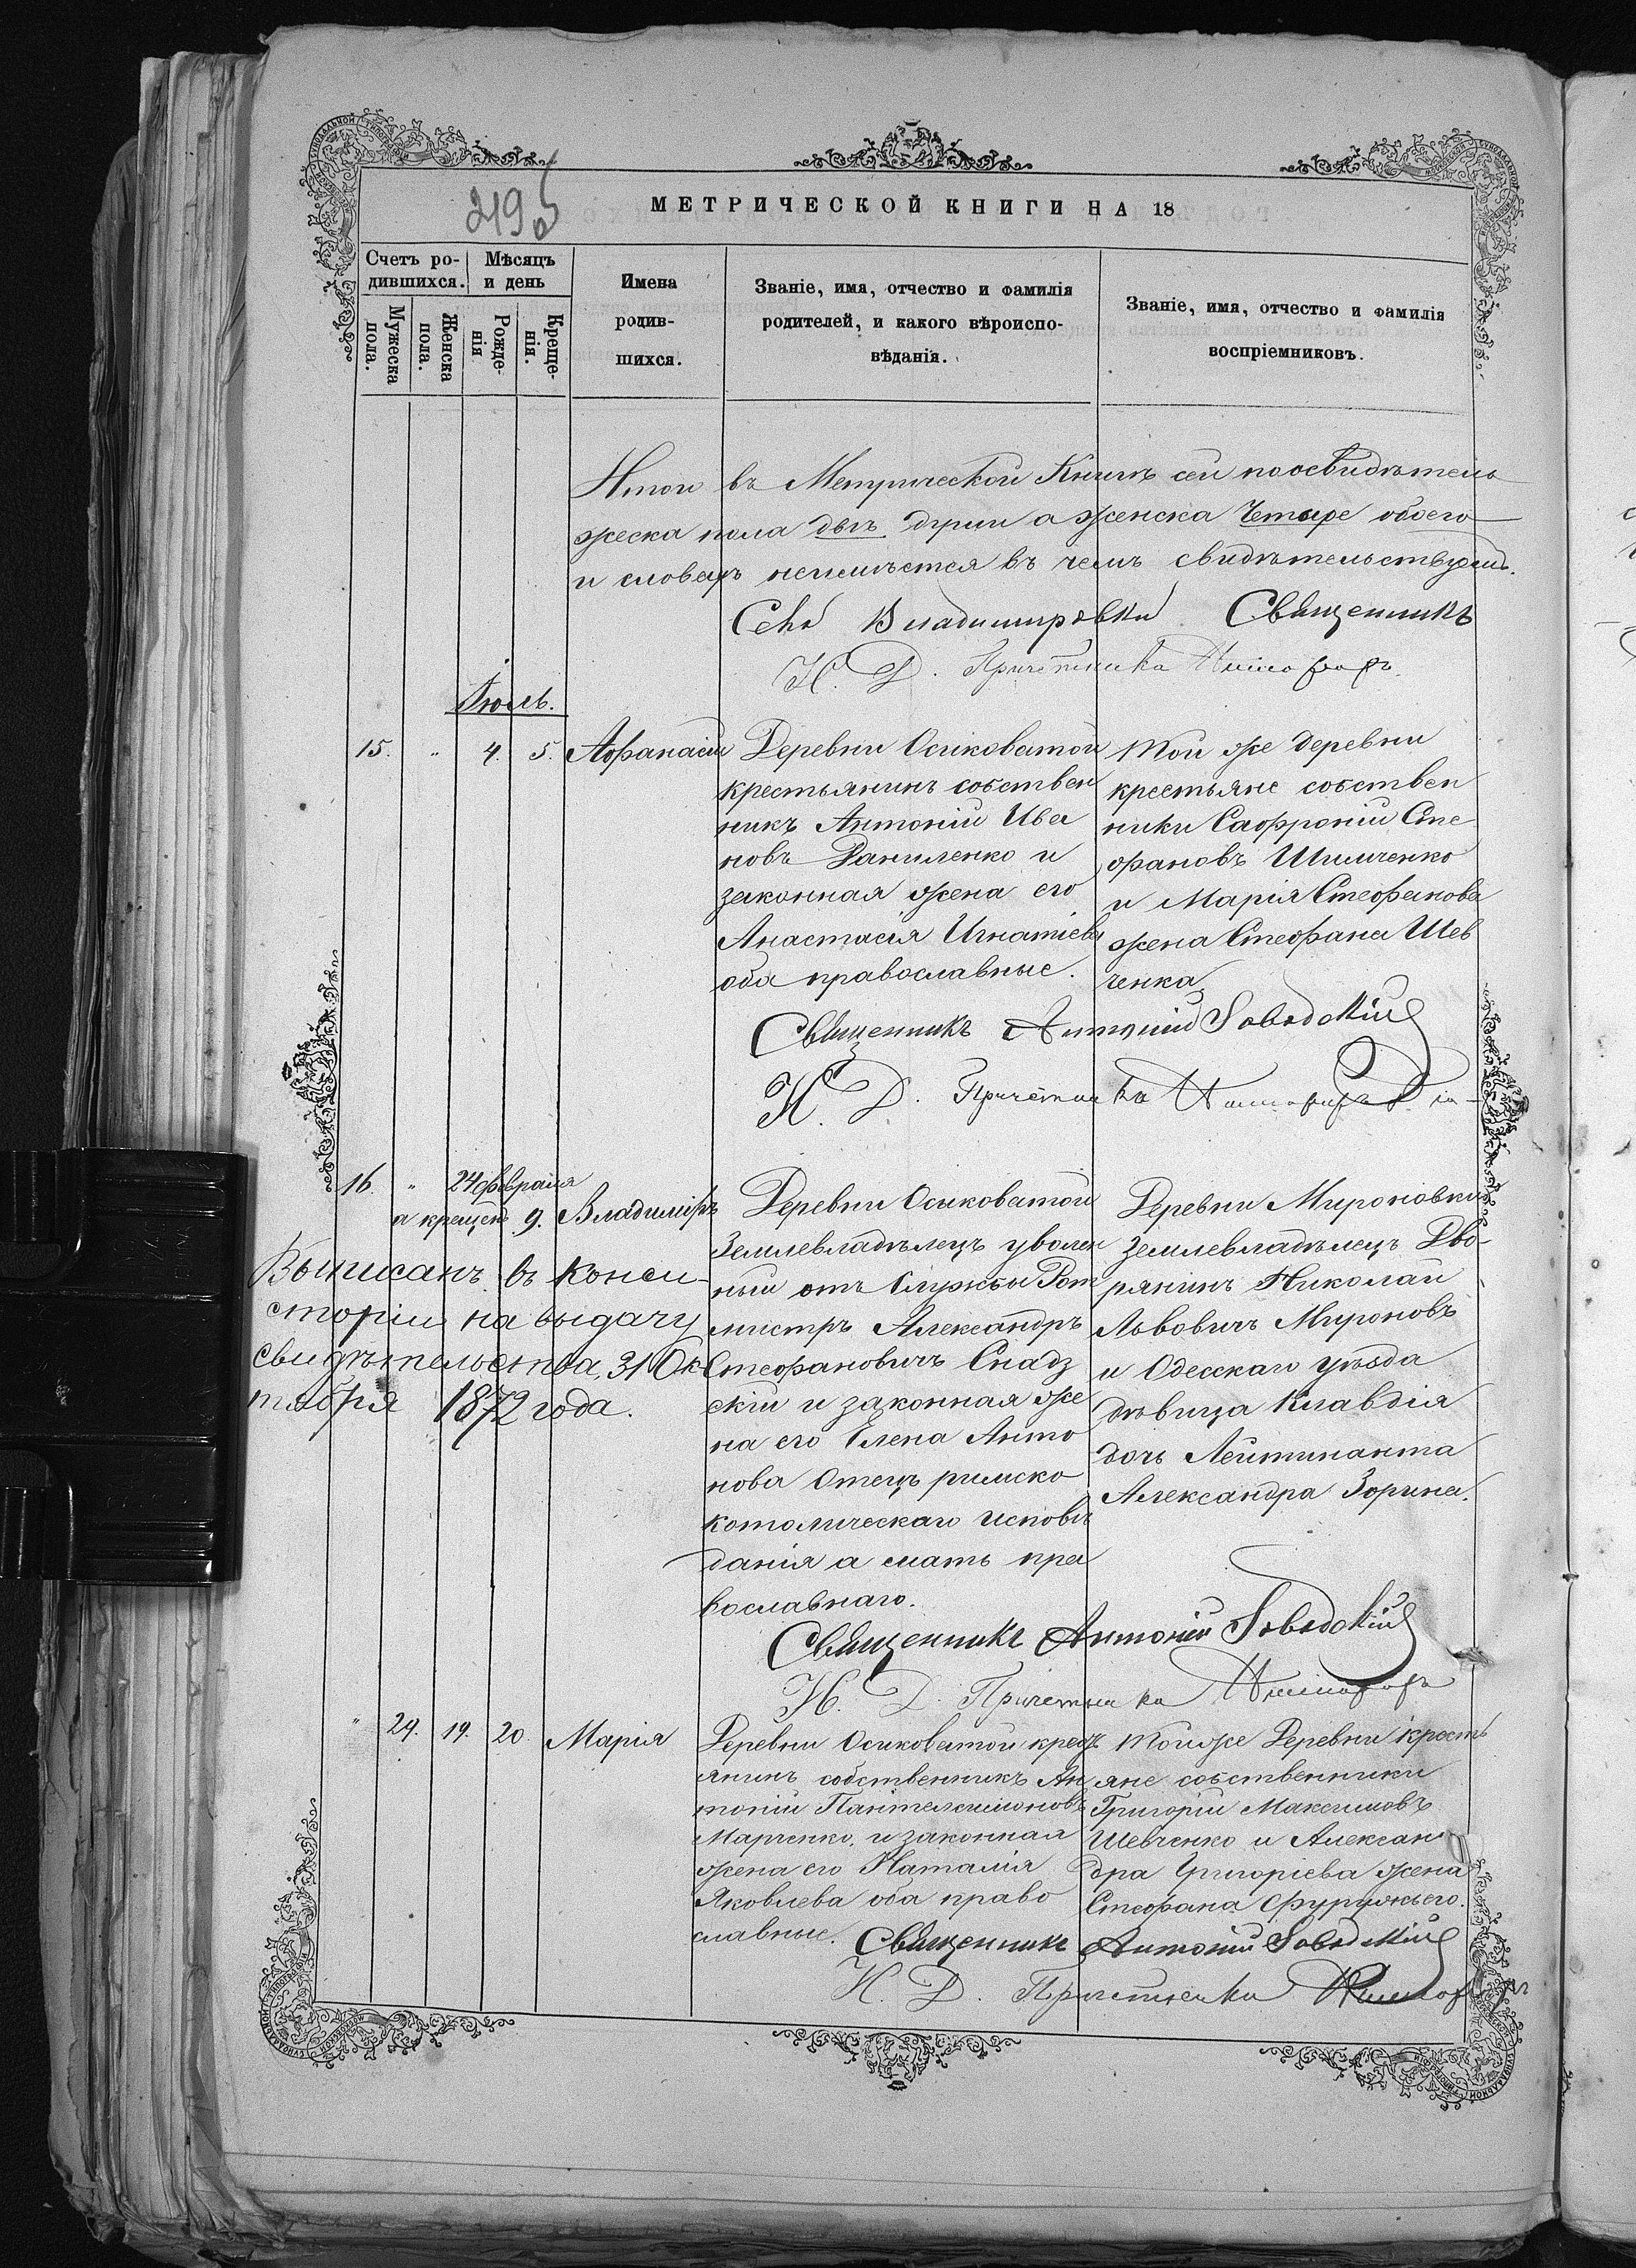 219 об
МЕТРИЧЕСКОЙ КНИГИ НА 18
Счетъ ро-
дившихся.
Мѣсяцъ
и день
Мужеска
пола.
Женска
пола.
Рожде-
нія
Креще-
нія.
Имена
родив-
шихся.
Званіе, имя, отчество и фамилія
родителей, и какого вѣроиспо-
вѣданія.
Званіе, имя, отчество и фамилія
воспріемниковъ.
Итои въ Метрической Книгѣ сей по освидѣтель
жеска пола двѣ души а женска Четыре обоего
и словецъ неимѣется въ чемъ свидѣтельствуемъ.
Села Владимировки Священникъ
И. Д. Причетника
Іюль.
15. " 4. 5. Афанасій
Деревни Осиковатой
крестьянинъ собствен
никъ Антоній Ива
новъ Даниленко и
законная жена его
Анастасія Игнатіева
оба православные.
Той же деревни
крестьяне собствен
ники Сафроній Сте
фановъ Шимченко
и Марія Стефанова
жена Стефана Шев
ченка
Священникъ Антоній
И. Д. Причетника
16. " 24 февраля
а крещенъ 9. Владиміръ
Выписанъ въ Конси-
сторіи на выдачу
свидѣтельства, 31 Ок-
тября 1872 года.
Деревни Осиковатой
Землевладѣлецъ уволен
ный отъ Службы Рот
мистръ Александръ
Стефановичъ Снадз
скій и законная же
на его Елена Анто
нова Отецъ римско
католическаго исповѣ
данія а мать пра
вославнаго.
Деревни Мироновки
Землевладѣлецъ Дво-
рянинъ Николай
Львовичъ Мироновъ
и Одесскаго уѣзда
дѣвица Клавдія
дочь Лейтинанта
Александра Зорина.
Священникъ Антоній
И. Д. Причетника
" 24. 19. 20 Марія
Деревни Осиковатой крест
янинъ собственникъ Ан
тоній Пантелеимоновъ
Марченко, и законная
жена его Наталія
Яковлева оба право
славные.
Тойже Деревни крестъ
яне собственники
Григорій Максимовъ
Шевченко и Алексан
дра Григоріева жена
Стефана
Священникъ Антоній
И. Д. Причетника